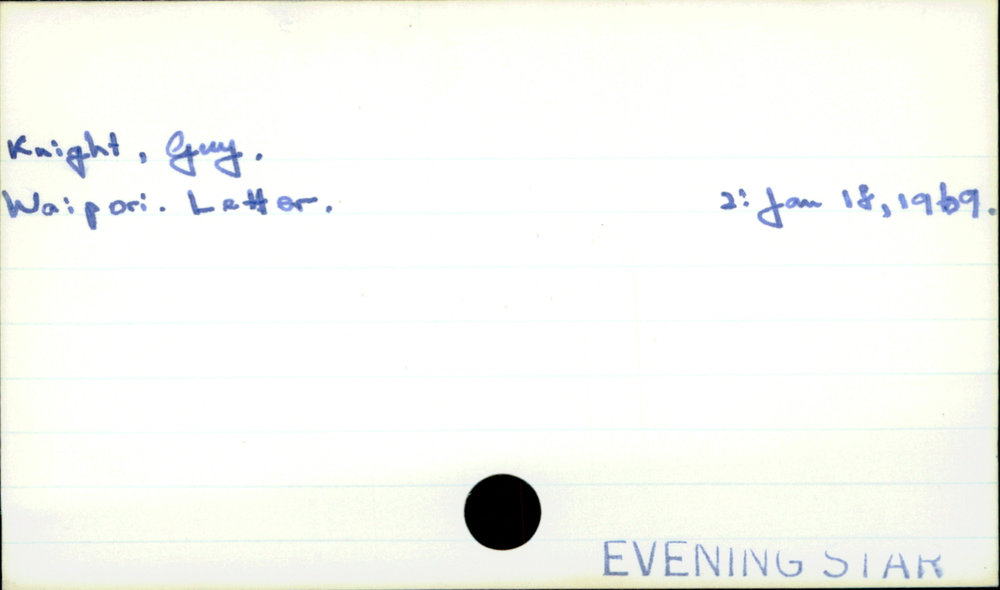 Knight, Guy.
Waipori. Letter. 2: Jan 18, 1969.
EVENING STAR